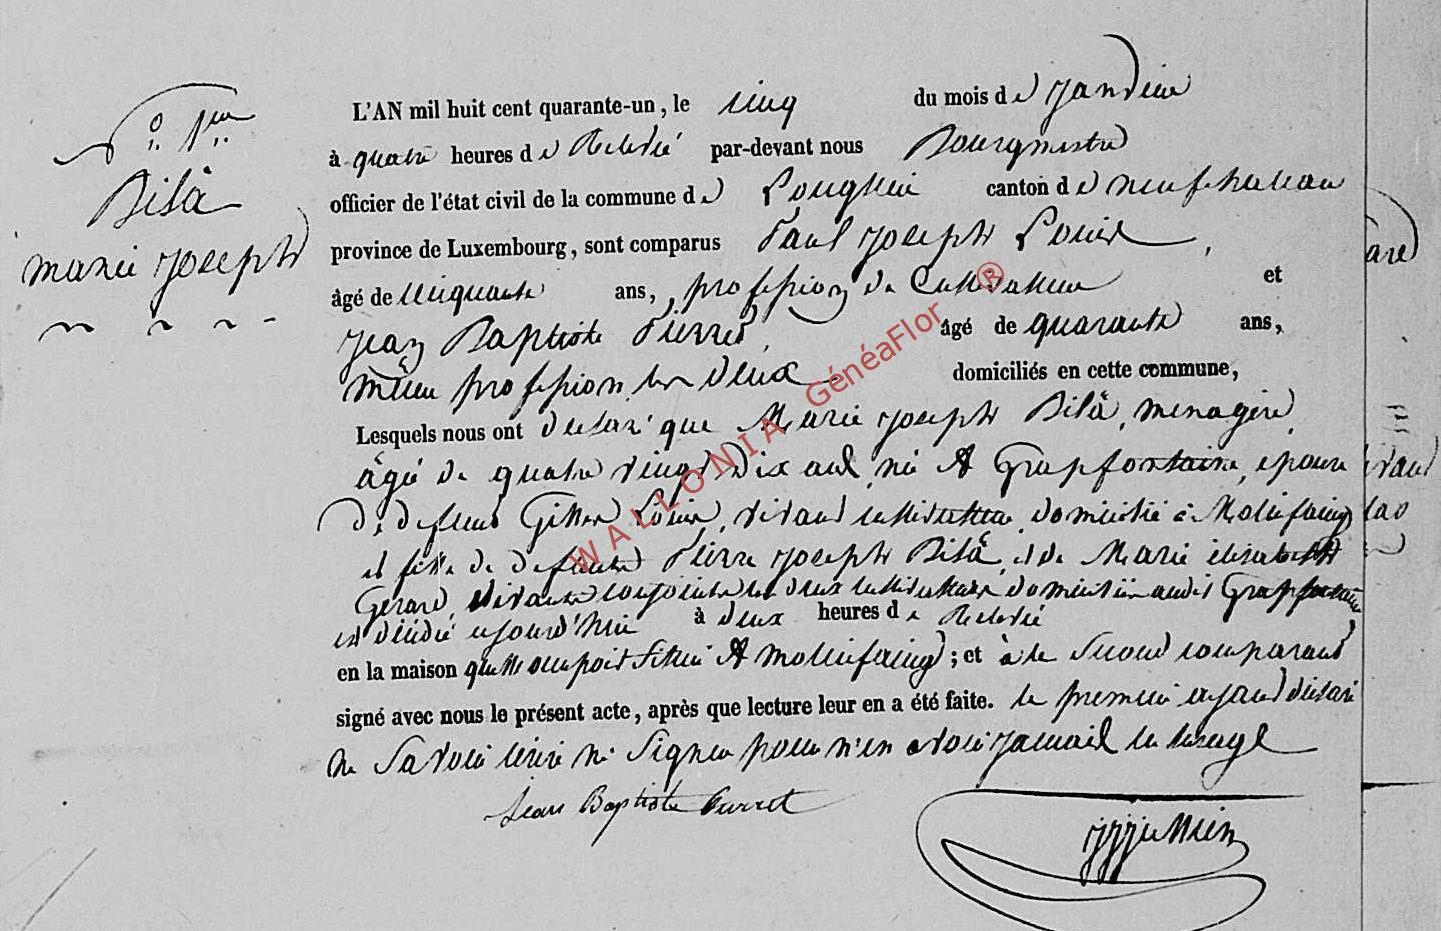 N° 1er
Bilâ
marie joseph
L'AN mil huit cent quarante-un, le cinq du mois de janvier
à quatre heures de Relevé par-devant nous Bourgmestre
officier de l'état civil de la commune de Longlier canton de neufchateau
province de Luxembourg, sont comparus Paul joseph Louis,
âgé de cinquante ans, profession de Cultivateur et
jean Baptiste Pierret, âgé de quarante ans,
même profession les deux domiciliés en cette commune,
Lesquels nous ont declaré que Marie joseph Bilâ, menagère,
âgée de quatre vingt dix ans, née à Grapfontaine, epouse
de defunt Louis, vivant cultivateur domicilié à Molinfaing
et fille de defunts Pierre joseph Bilâ, et de Marie elisabeth
Gerard, vivants conjoints les deux cultivateurs domiciliés audit Grapfontaine
est décédé ajourd'hui à deux heures de Relevé
en la maison quelle occupoit située à Molinfaing; et à le second comparant
signé avec nous le présent acte, après que lecture leur en a été faite. le premier ayant déclaré
ne savoir écrire ni signer pour n'en avoir jamais eu l'usage
Jean Baptiste Pierret
WALLONIA GénéaFlor ®